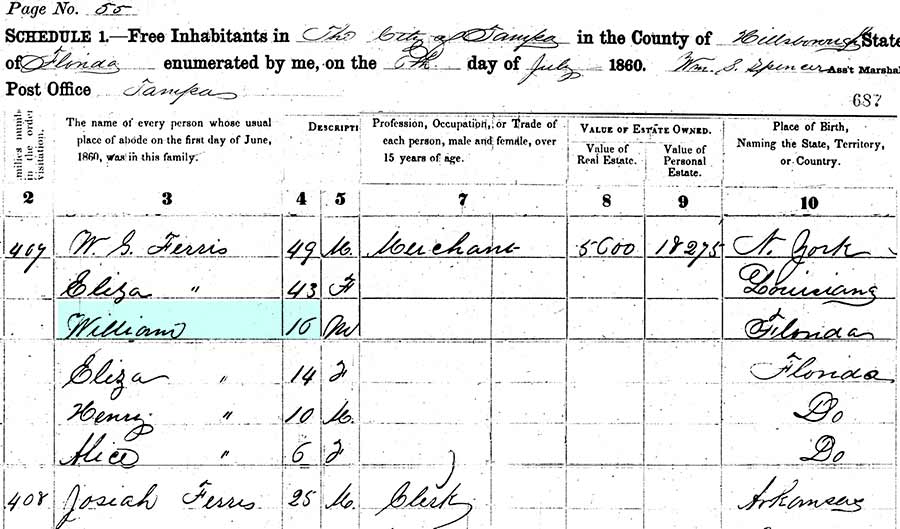 Page No. 55
SCHEDULE 1.—Free Inhabitants in The City of Tampa in the County of Hillsborough State
of Florida enumerated by me, on the 6th day of July 1860. Wm. S. Spencer Ass't Marshal
Post Office Tampa
687
milies numb in the order visitation.
The name of every person whose usual place of abode on the first day of June, 1860, was in this family.
DESCRIPTI
Profession, Occupation, or Trade of each person, male and female, over 15 years of age.
VALUE OF ESTATE OWNED.
Value of Real Estate.
Value of Personal Estate.
Place of Birth, Naming the State, Territory, or Country.
2 3 4 5 7 8 9 10
407 W. G. Ferris 49 M. Merchant 5000 18275 N. York
Eliza " 43 F Louisiana
William 16 M Florida
Eliza " 14 F Florida
Henry " 10 M. Do
Alice " 6 F Do
408 Josiah Ferris 25 M. Clerk Arkansas